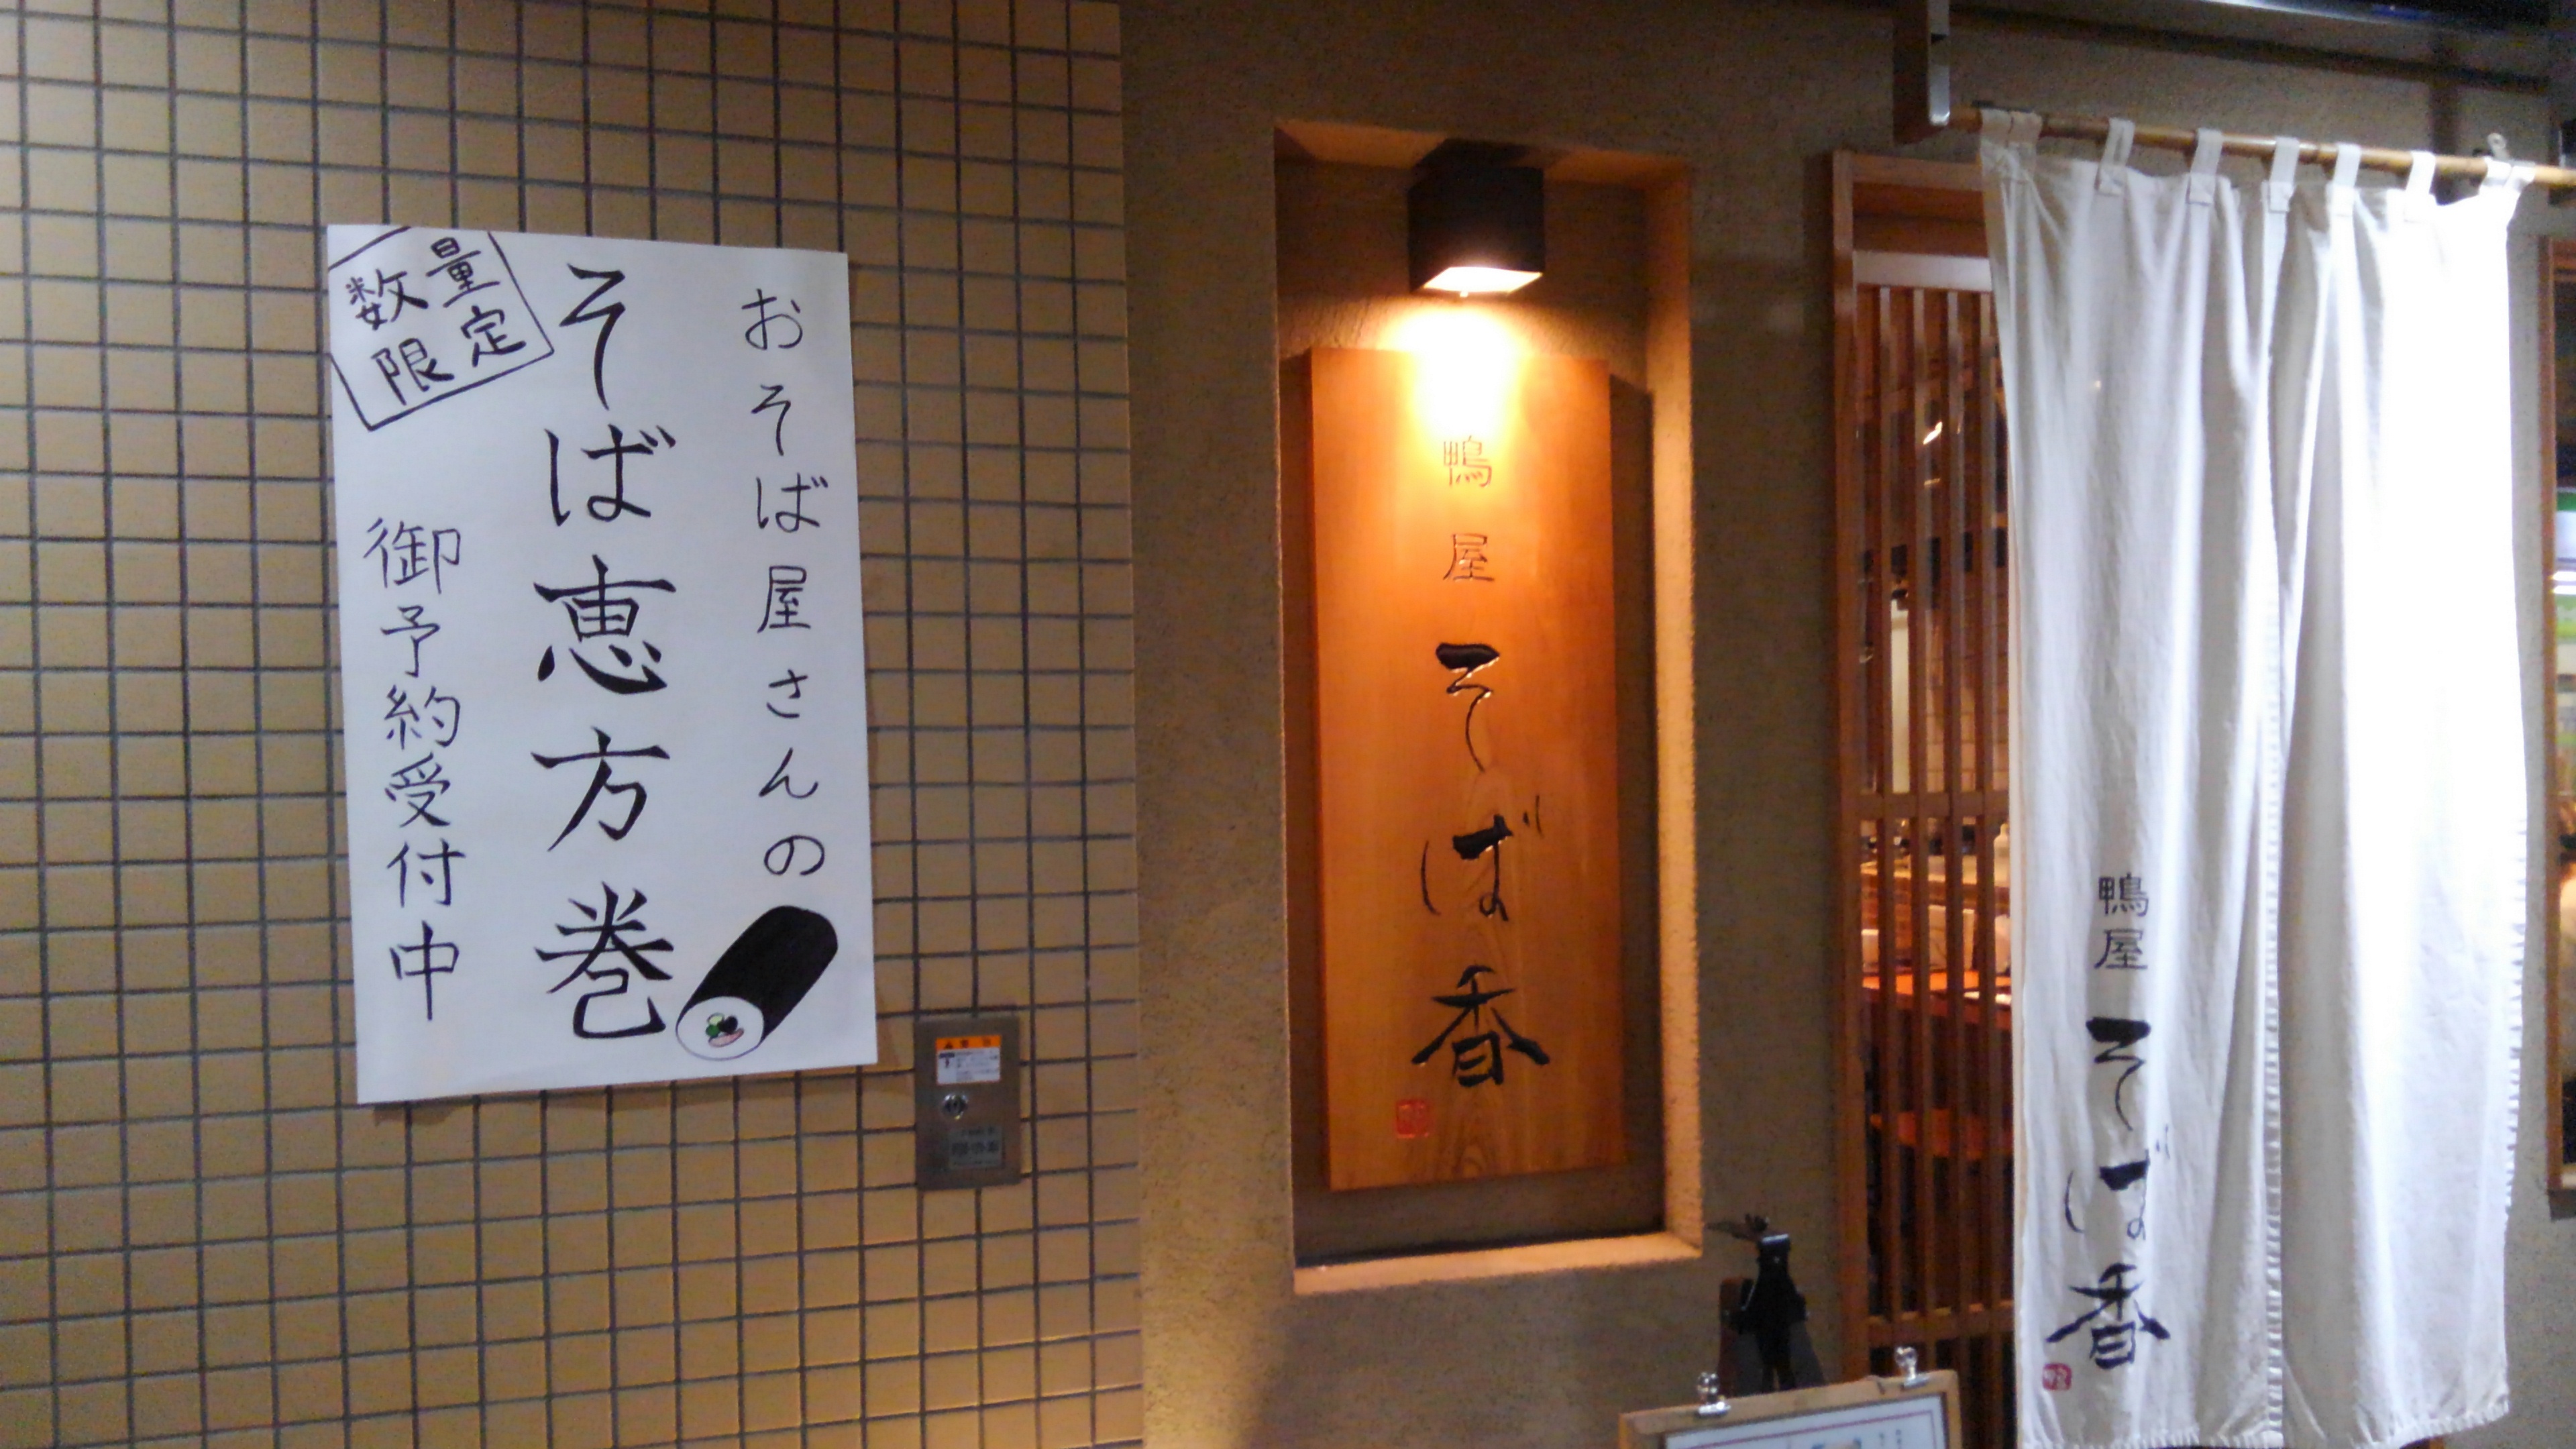 おそば屋さんの
そば恵方巻
数量
限定
御予約受付中
鴨屋
そば香
鴨屋
そば香